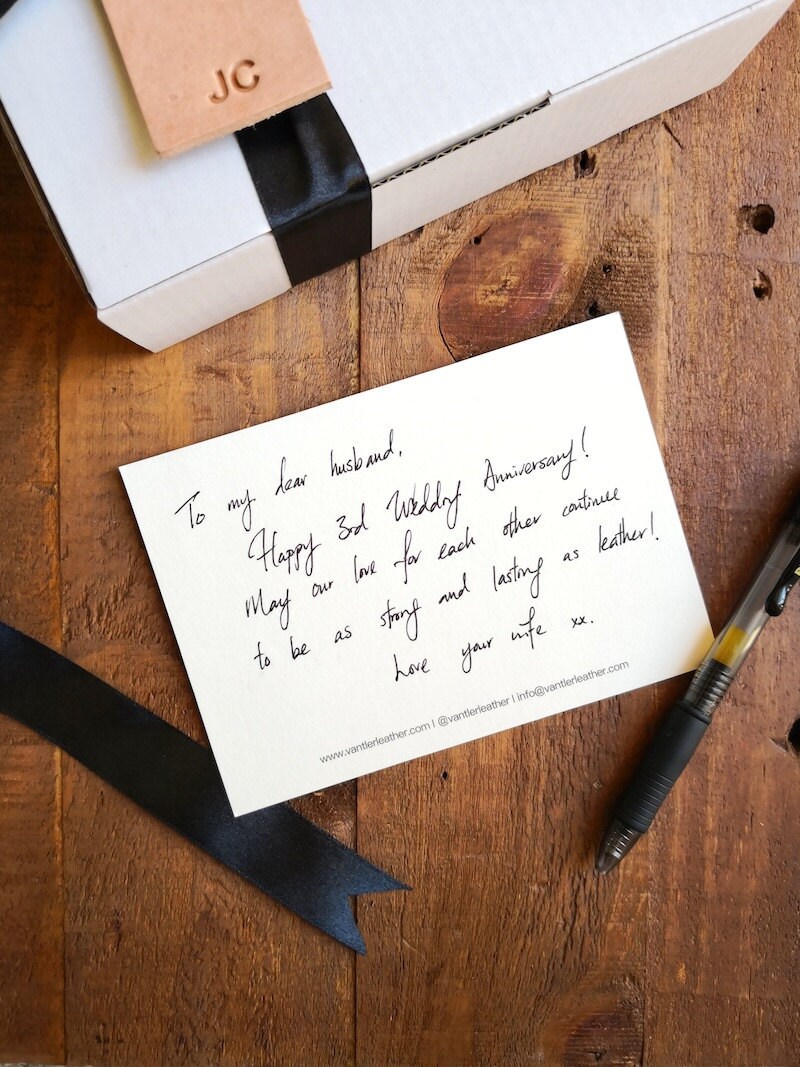 JC
To my dear husband,
Happy 3rd Wedding Anniversary!
May our love for each other continue
to be as strong and lasting as leather!
Love your wife xx.
www.vantlerleather.com | @vantlerleather | info@vantlerleather.com